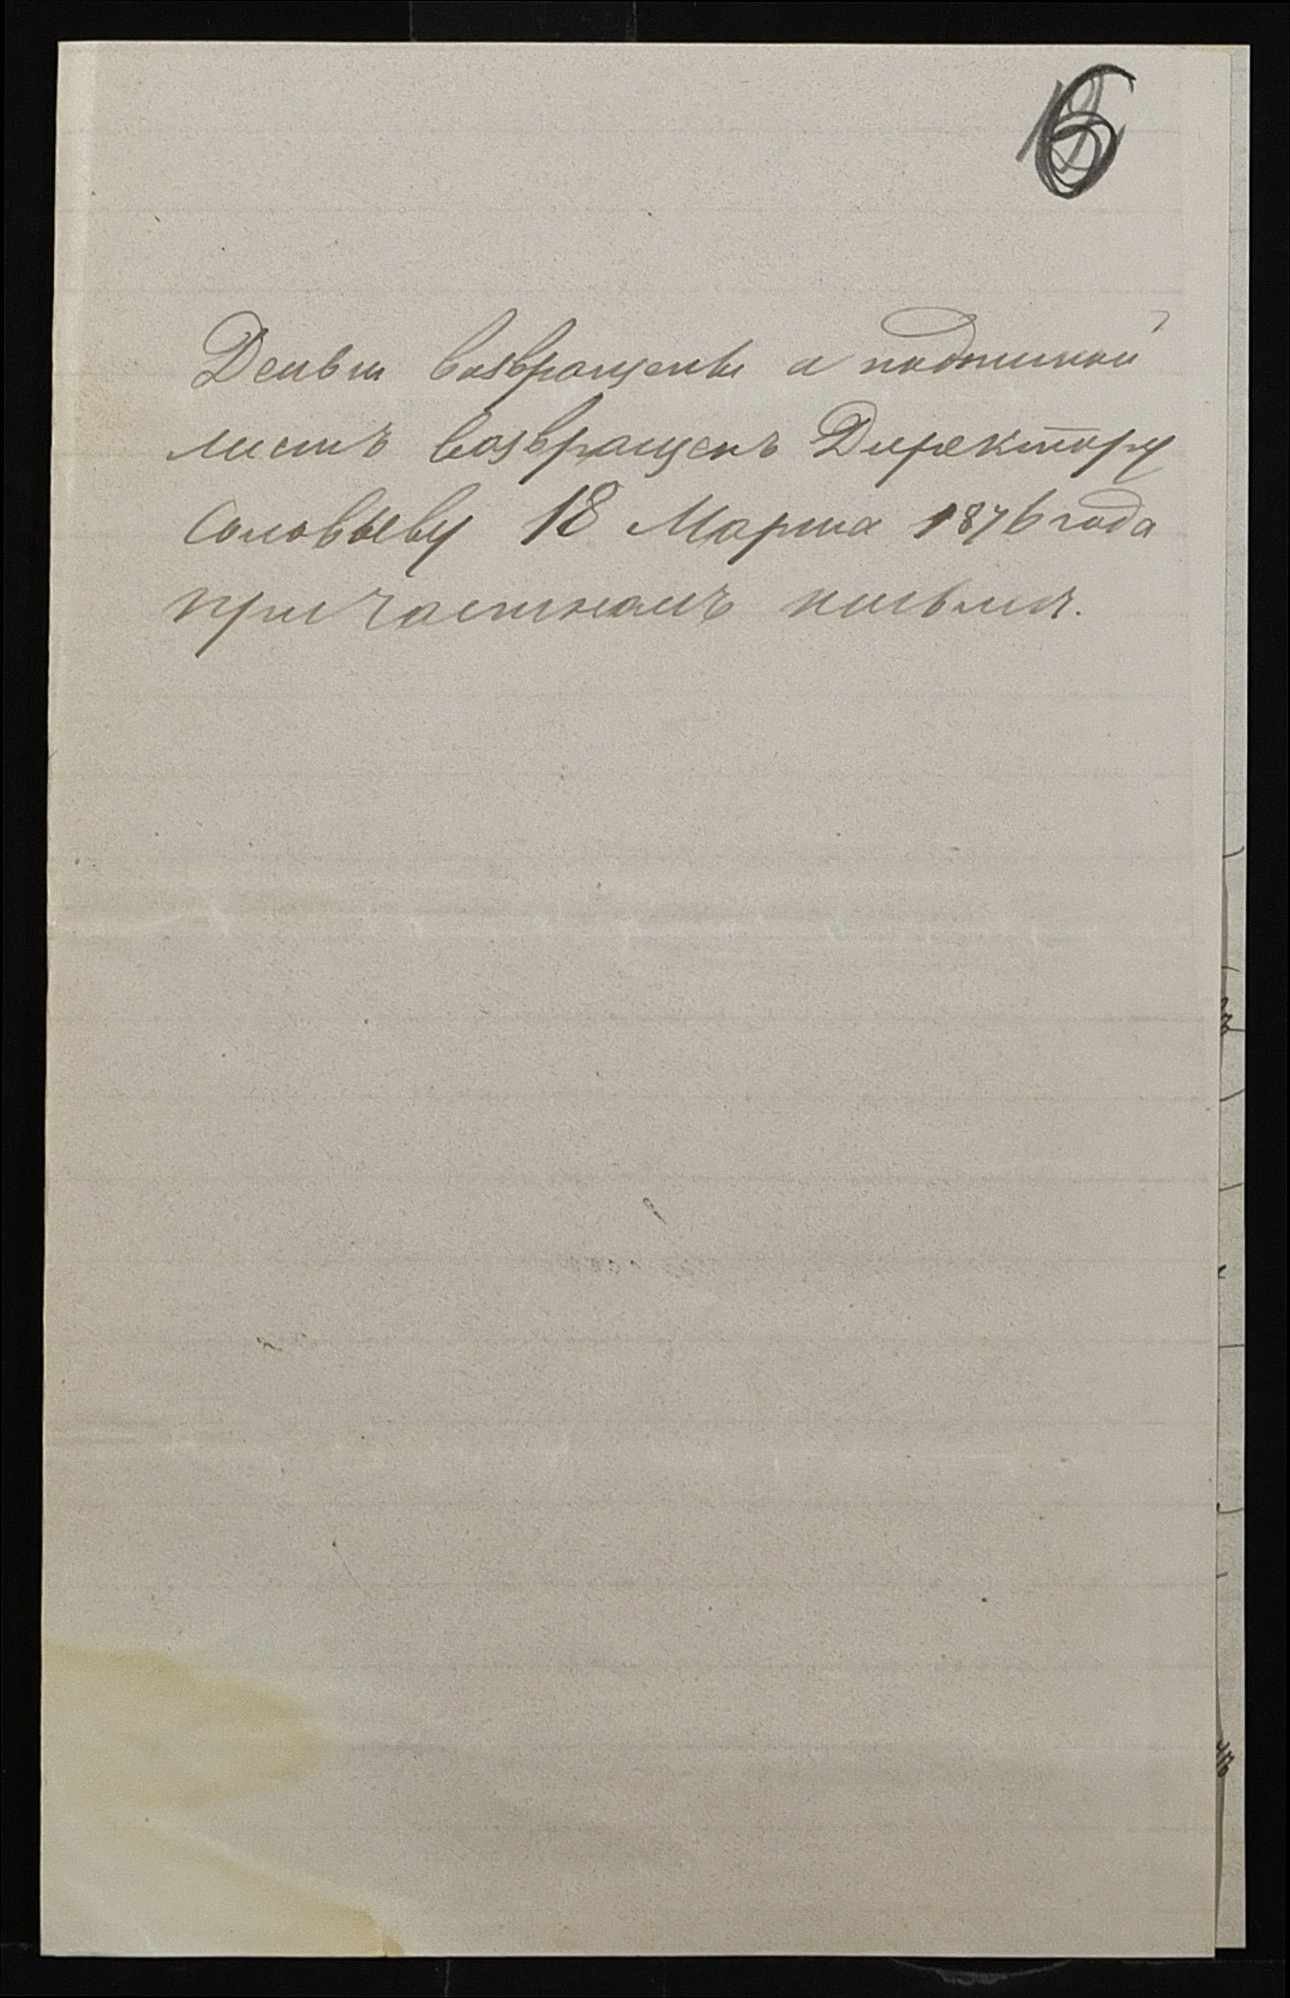 6
Деньги возвращены а подписной
листъ возвращенъ Директору
Соловьеву 18 Марта 1876 года
при частномъ письмѣ.